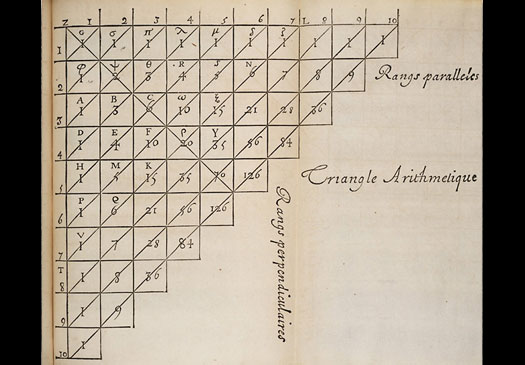 Z 1 2 3 4 5 6 7 L 8 9 10
G σ π λ μ δ ζ
1 1 1 1 1 1 1 1 1 1 1
φ ψ θ R S N
2 1 2 3 4 5 6 7 8 9 Rangs paralleles
A B C ω ξ
3 1 3 6 10 15 21 28 36
D E F ρ Y
4 1 4 10 20 35 56 84
H M K
5 1 5 15 35 70 126 Triangle Arithmetique
P Q
6 1 6 21 56 126
V
7 1 7 28 84
T
8 1 8 36
9 1 9
10 1
Rangs perpendiculaires